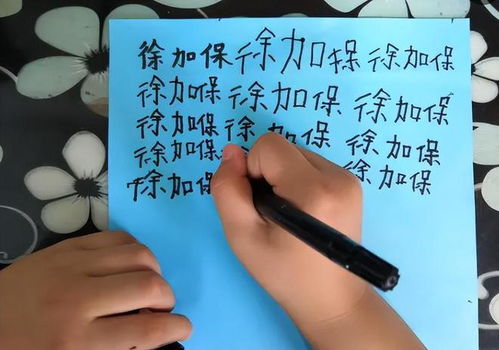 徐加保 徐加保 徐加保
徐加保 徐加保 徐加保
徐加保 徐加保 徐加保
徐加保 徐加保
徐加保